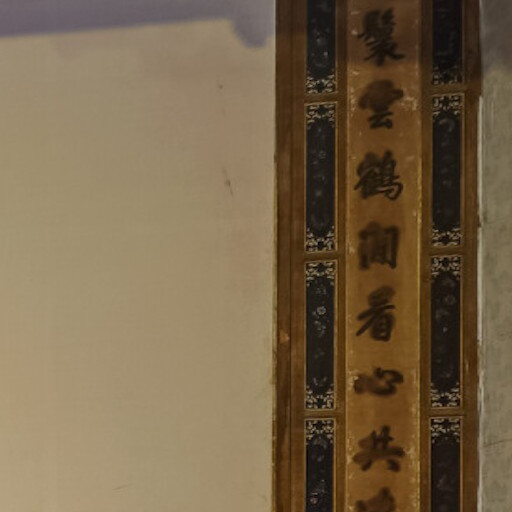 鬟雲鶴閒看心共